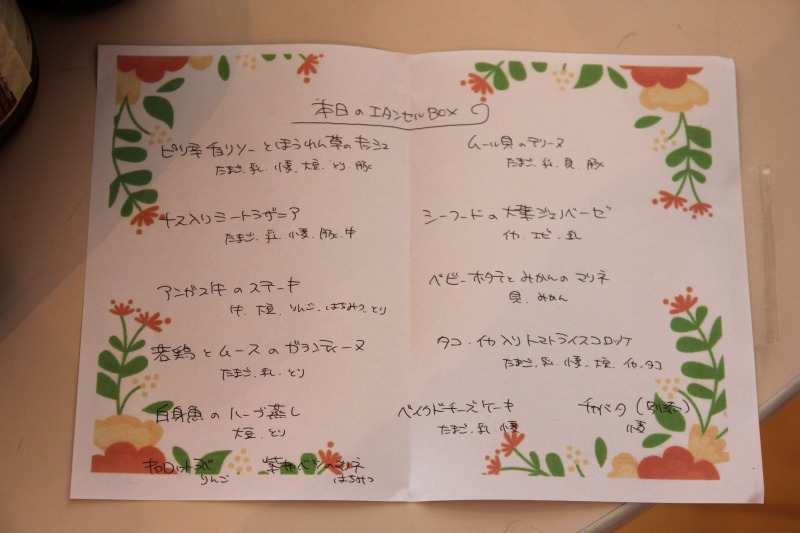 本日のエタンセルBOX
ピリ辛チョリソーとほうれん草のキッシュ
たまご、乳、小麦、大豆、とり、豚
ナス入りミートラザニア
たまご、乳、小麦、豚、牛
アンガス牛のステーキ
牛、大豆、りんご、はちみつ、とり
若鶏とムースのガランティーヌ
たまご、乳、とり
白身魚のハーブ蒸し
大豆、とり
キャロットラペ
りんご
紫キャベツのマリネ
はちみつ
ムール貝のテリーヌ
たまご、乳、貝、豚
シーフードの大葉ジェノベーゼ
イカ、エビ、乳
ベビーホタテとみかんのマリネ
貝、みかん
タコ・イカ入りトマトライスコロッケ
たまご、乳、小麦、大豆、イカ、タコ
ベイクドチーズケーキ
たまご、乳、小麦
チャバタ(別添)
小麦